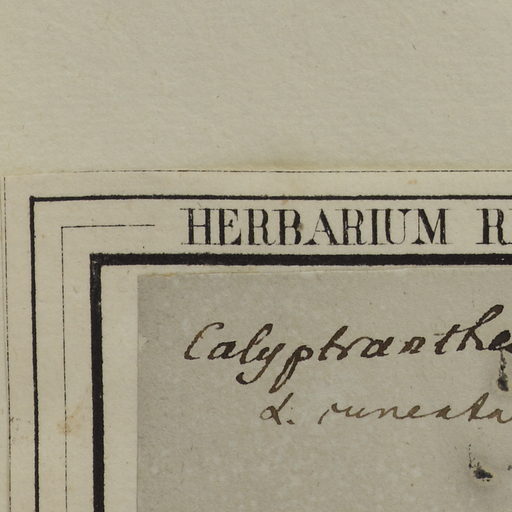 HERBARIUM R
Calyptranthe
α. cuneata